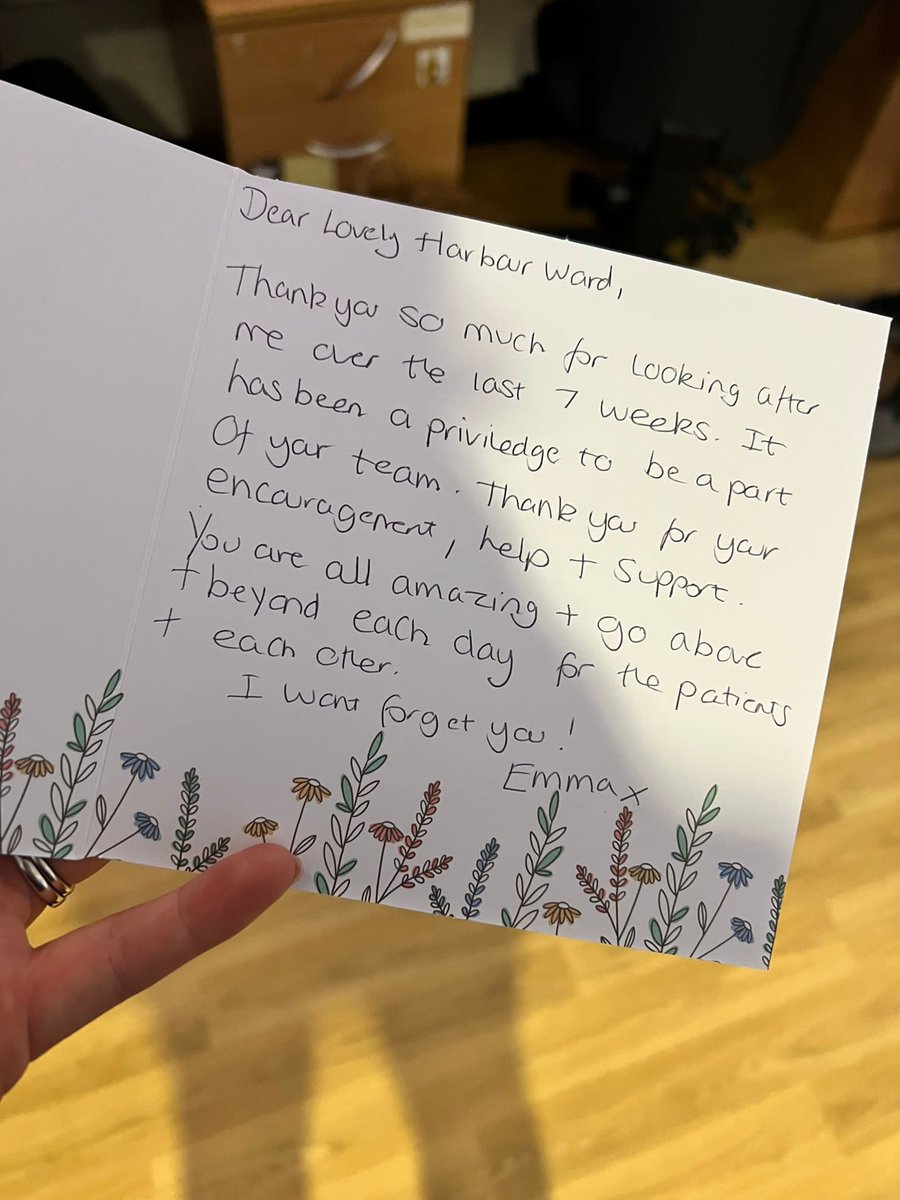 Dear Lovely Harbour Ward,
Thank you so much for looking after
me over the last 7 weeks. It
has been a priviledge to be a part
Of your team. Thank you for your
encouragement, help + support.
You are all amazing + go above
+ beyond each day for the patients
+ each other.
I wont forget you!
Emma x